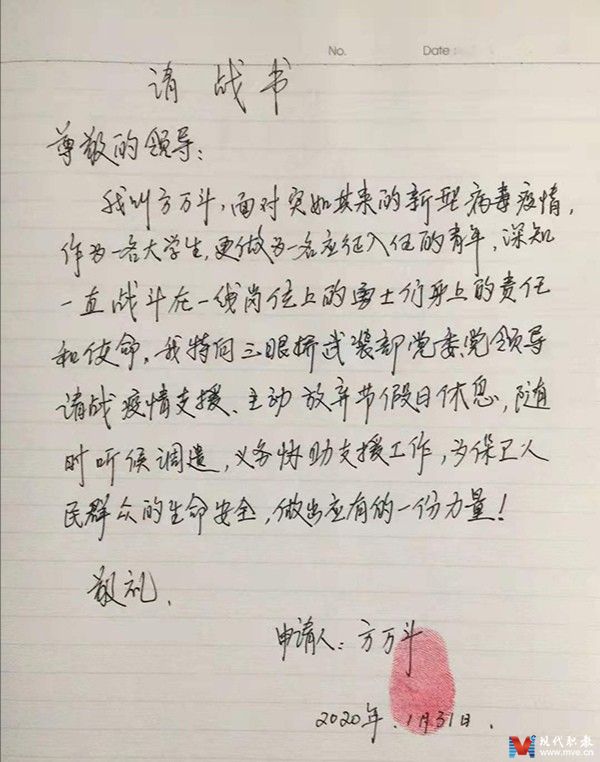 No.
Date
请战书
尊敬的领导:
我叫方万斗,面对突如其来的新型病毒疫情,
作为一名大学生,更做为一名应征入伍的青年,深知
一直战斗在一线岗位上的勇士们身上的责任
和使命,我特向三眼桥武装部党委党领导
请战疫情支援、主动放弃节假日休息,随
时听候调遣,义务协助支援工作,为保卫人
民群众的生命安全,做出应有的一份力量!
敬礼.
申请人:方万斗
2020年.1月31日.
现代职教
www.mve.cn